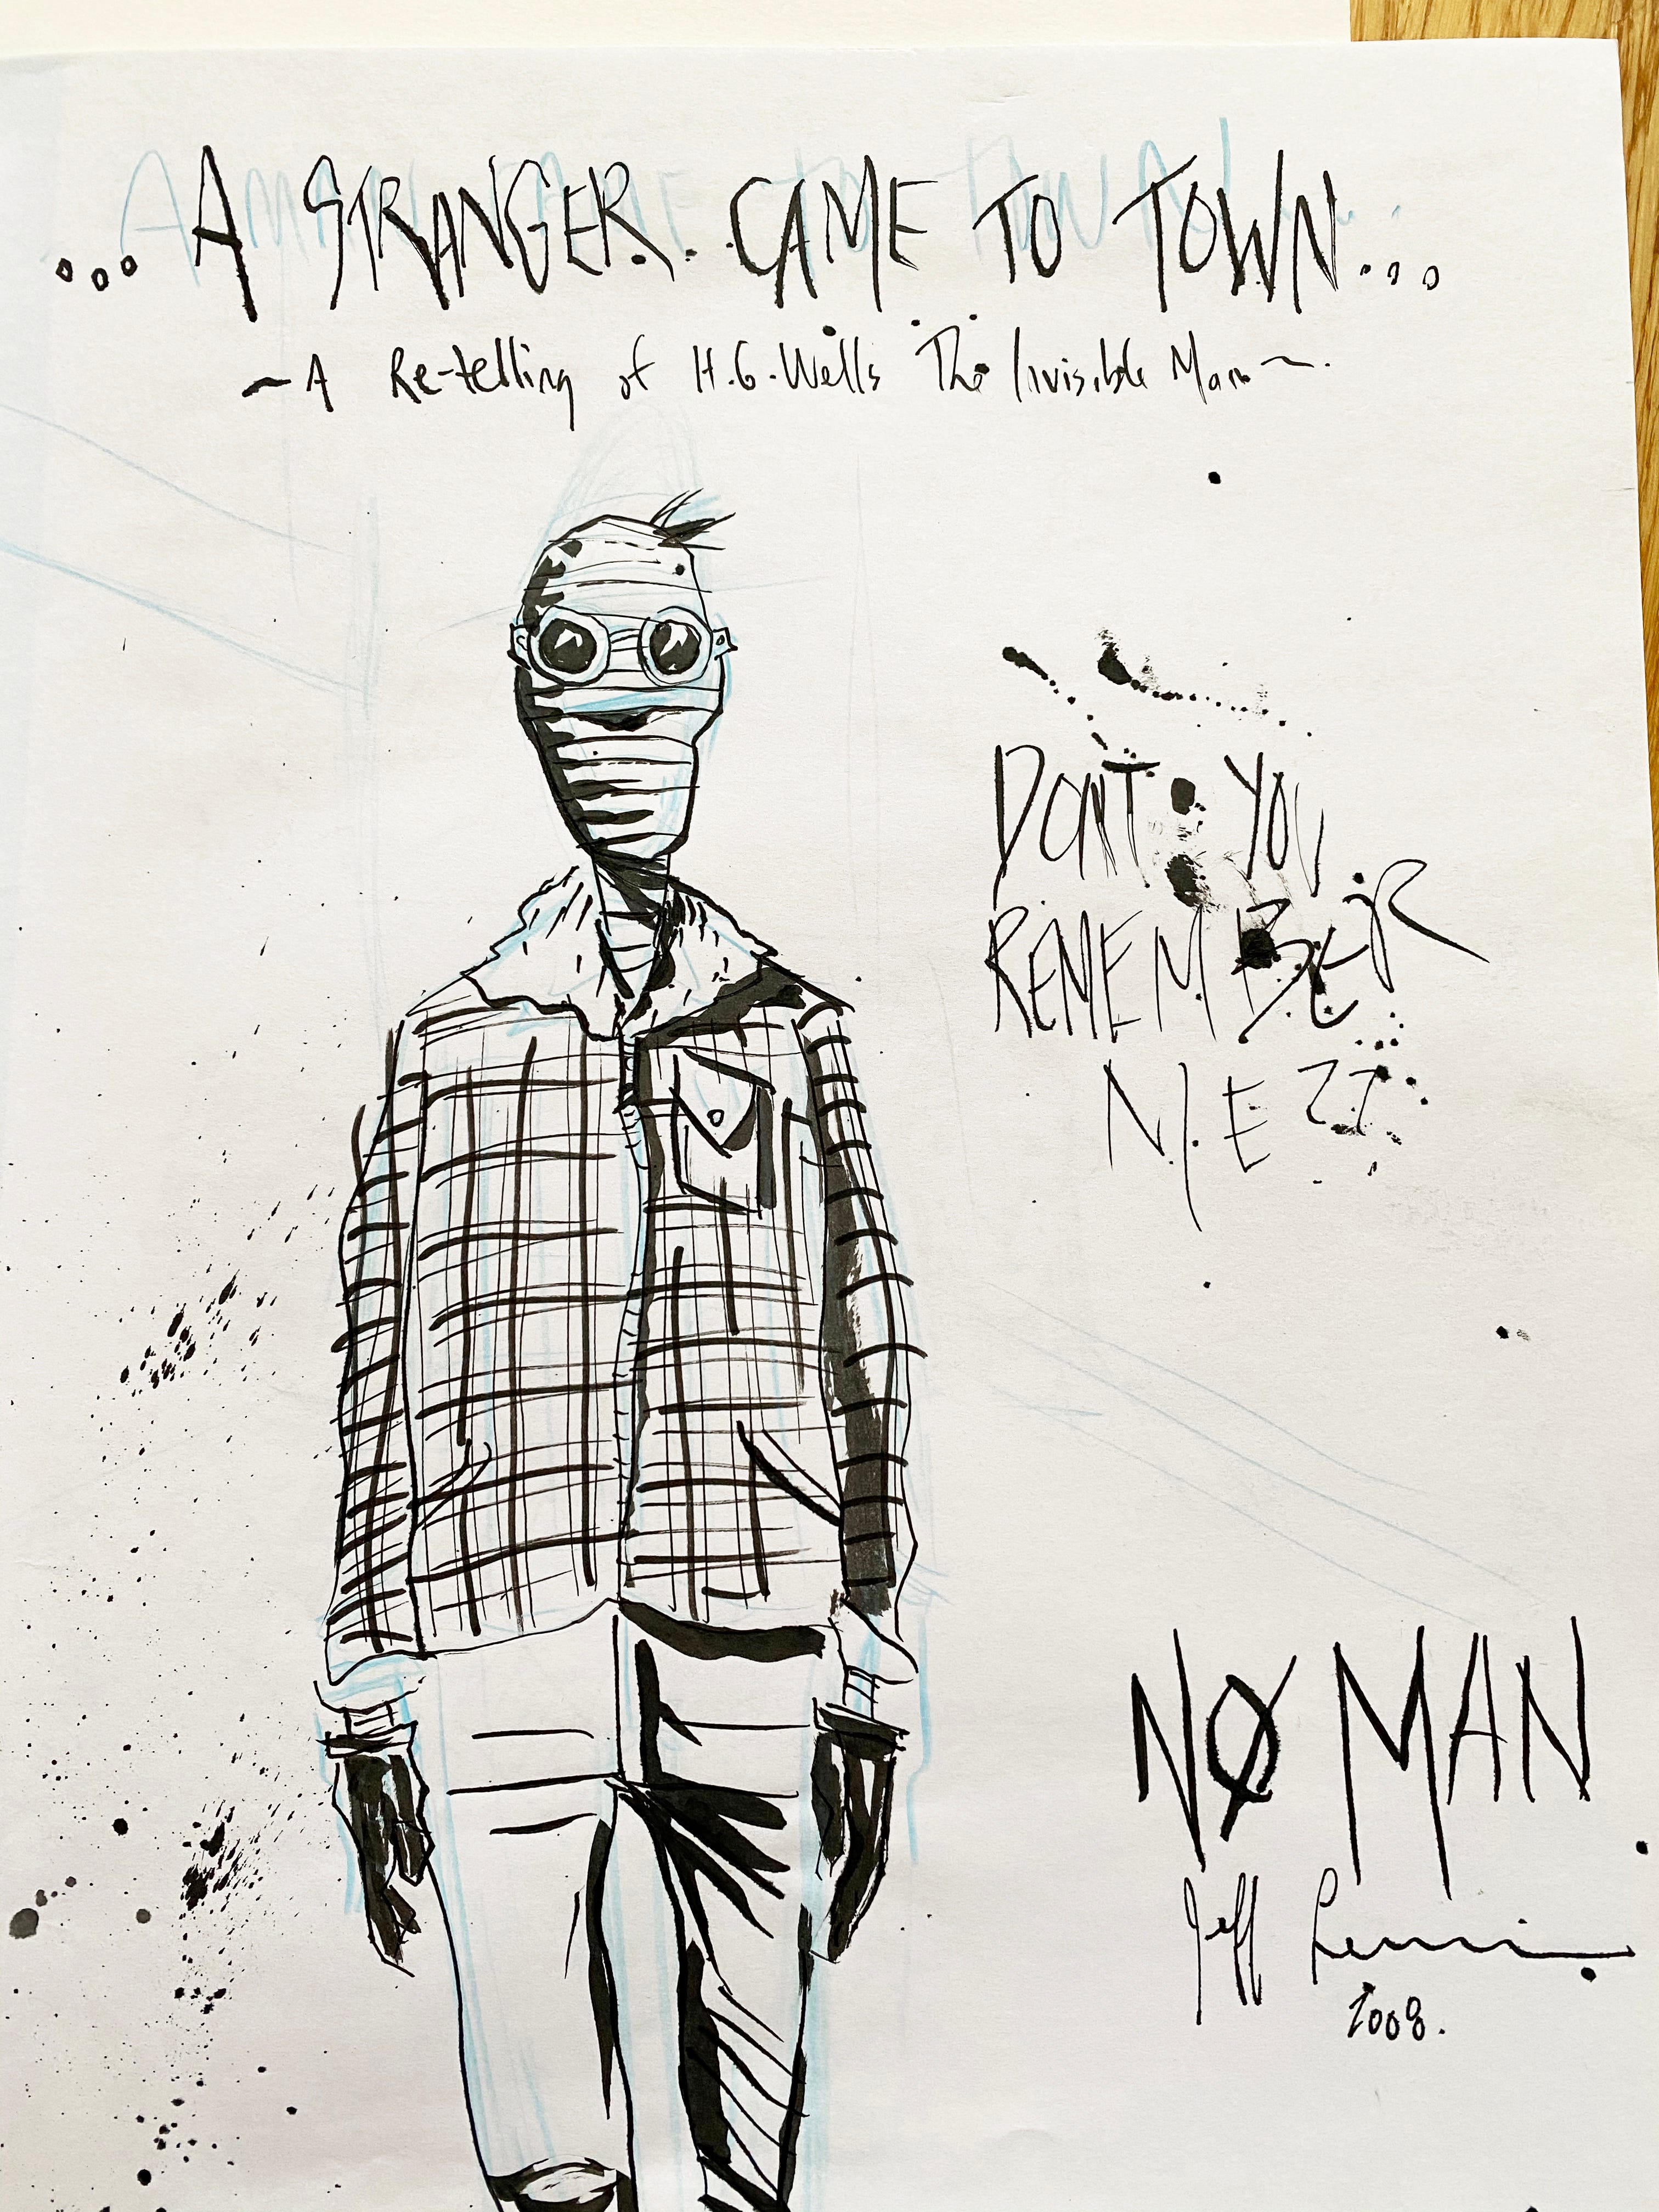 ... A STRANGER. CAME TO TOWN...
~ A Re-telling of H.G. Wells The Invisible Man ~.
DONT YOU
REMEMBER
ME??
NØ MAN
Jeff Lemire
2008.